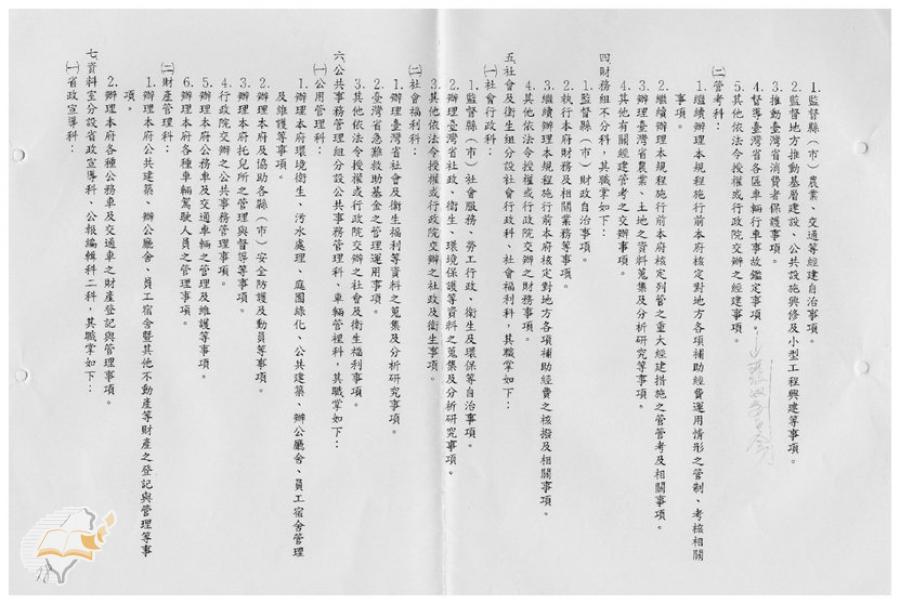 1.監督縣（市）農業、交通等經建自治事項。
2.監督地方推動基層建設、公共設施興修及小型工程興建等事項。
3.推動臺灣省消費者保護事項。
4.督導臺灣省各區車輛行車事故鑑定事項。
5.其他依法令授權或行政院交辦之經建事項。
㈡管考科：
1.繼續辦理本規程施行前本府核定對地方各項補助經費運用情形之管制、考核相關
事項。
2.繼續辦理本規程施行前本府核定列管之重大經建措施之管管考及相關事項。
3.辦理臺灣省農業、土地之資料蒐集及分析研究等事項。
4.其他有關經建管考之交辦事項。
四財務組不分科，其職掌如下：
1.監督縣（市）財政自治事項。
2.執行本府財務及相關業務等事項。
3.繼續辦理本規程施行前本府核定對地方各項補助經費之核撥及相關事項。
4.其他依法令授權或行政院交辦之財務事項。
五社會及衛生組分設社會行政科、社會福利科，其職掌如下：
㈠社會行政科：
1.監督縣（市）社會服務、勞工行政、衛生及環保等自治事項。
2.辦理臺灣省社政、衛生、環境保護等資料之蒐集及分析研究事項。
3.其他依法令授權或行政院交辦之社政及衛生事項。
㈡社會福利科：
1.辦理臺灣省社會及衛生福利等資料之蒐集及分析研究事項。
2.臺灣省急難救助基金之管理運用事項。
3.其他依法令授權或行政院交辦之社會及衛生福利事項。
六公共事務管理組分設公共事務管理科、車輛管裡科，其職掌如下：
㈠公用管理科：
1.辦理本府環境衛生、污水處理、庭園綠化、公共建築、辦公廳舍、員工宿舍管理
及維護等事項。
2.辦理本府及協助各縣（市）安全防護及動員等事項。
3.辦理本府托兒所之管理與督導等事項。
4.行政院交辦之公共事務管理事項。
5.辦理本府公務車及交通車輛之管理及維護等事項。
6.辦理本府各種車輛駕駛人員之管理事項。
㈡財產管理科：
1.辦理本府公共建築、辦公廳舍、員工宿舍暨其他不動產等財產之登記與管理等事
項。
2.辦理本府各種公務車及交通車之財產登記與管理事項。
七資料室分設省政宣導科、公報編輯科二科，其職掌如下：
㈠省政宣導科：